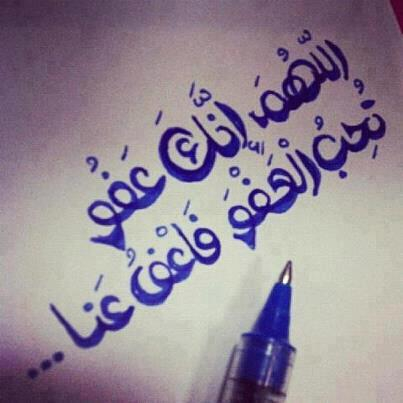 اللَّهُمَ انَّكَ عَفُوُ
تُحِبُ الْعَفْوَ فَاعْفُ عَنا...